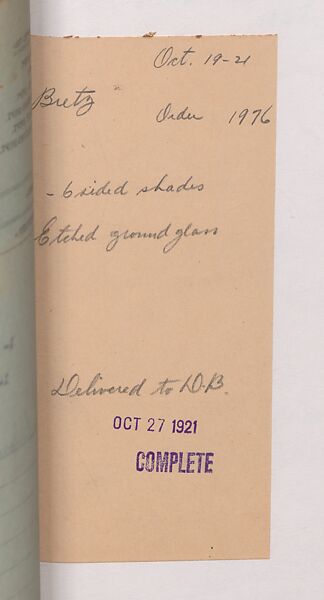 Oct. 19-21
Bretz
Order 1976
- 6 sided shades
Etched ground glass
Delivered to D.B.
OCT 27 1921
COMPLETE